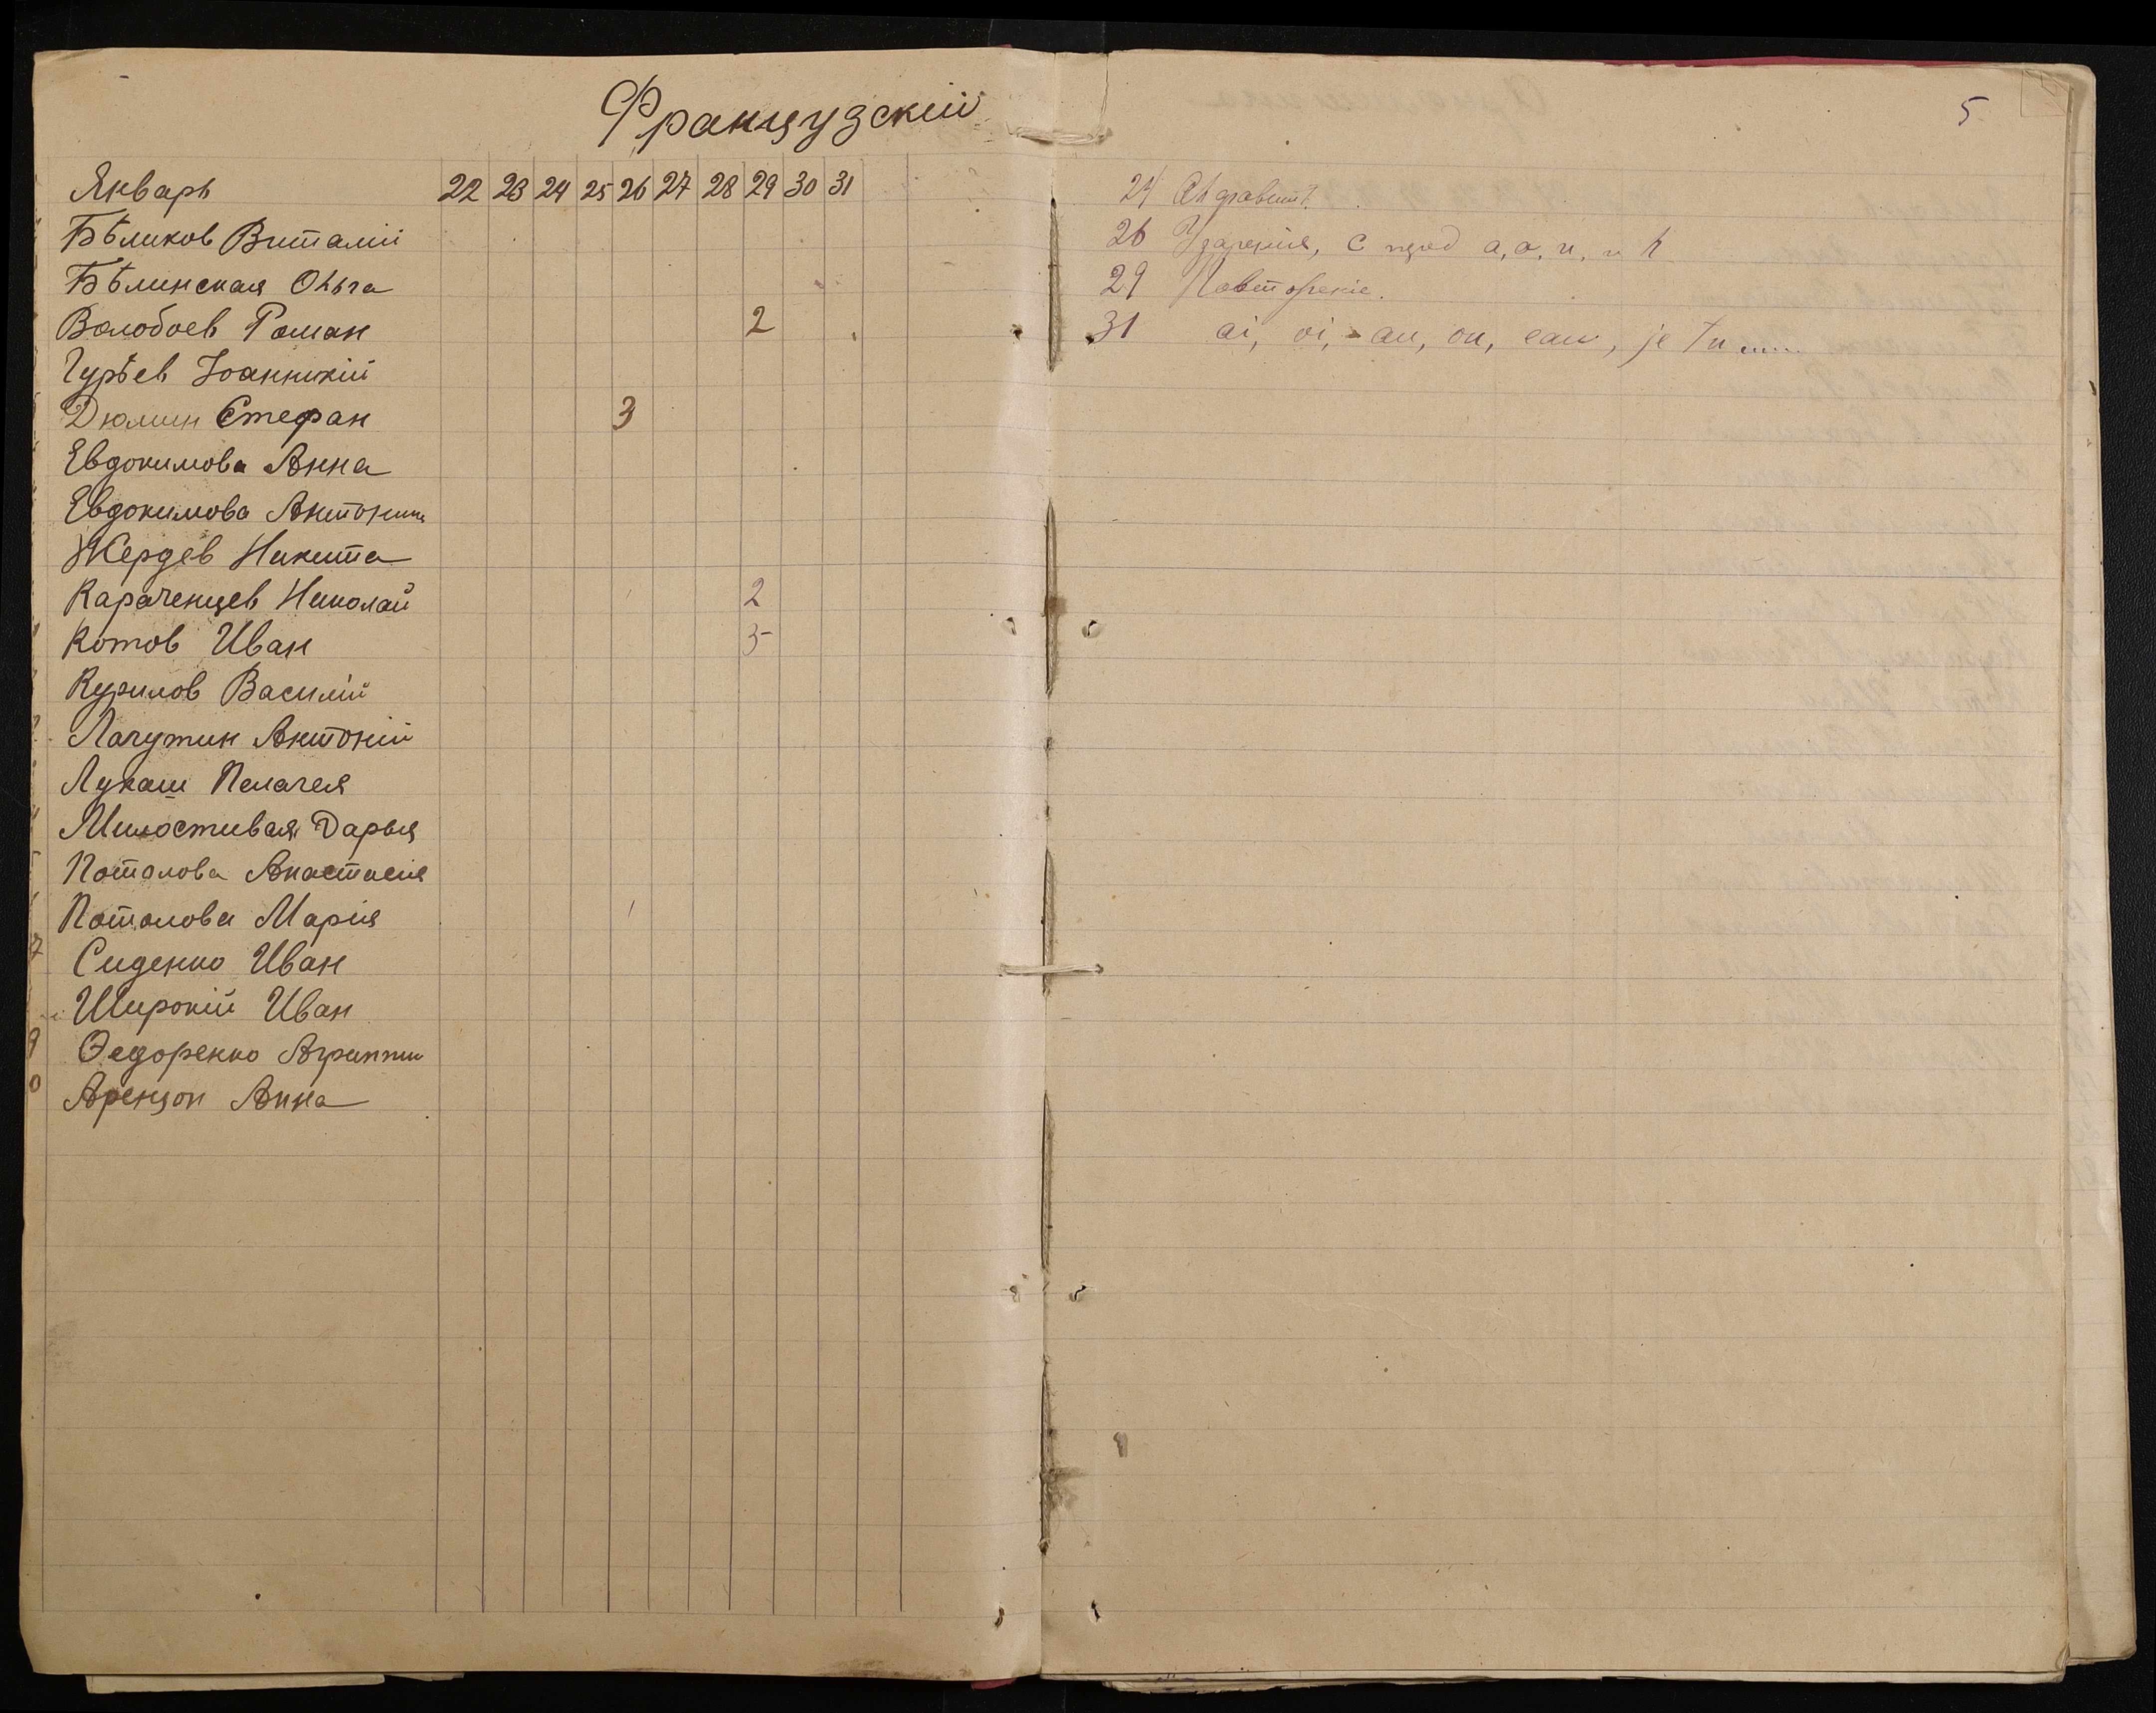 Французскій
Январь 22 23 24 25 26 27 28 29 30 31
Бѣликов Виталій
Бѣлинская Ольга
Волобоев Роман 2
Гурѣев Іоанникій
Дюмин Стефан 3
Евдокимова Анна
Евдокимова Антонина
Жердев Никита
Караченцев Николай 2
Котов Иван 3-
Курилов Василій
Лагутин Антоній
Лукаш Пелагея
Милостивая Дарья
Поталова Анастасія
Поталова Марія
7 Сиденко Иван
Широкій Иван
9 Ѳедоренко Агриппин
0 Аренцон Анна
5
24 Алфавит.
26 Ударенія, с пред а, о, u, и h
29 Повтореніе.
31 ai, oi, au, ou, eau, je tu